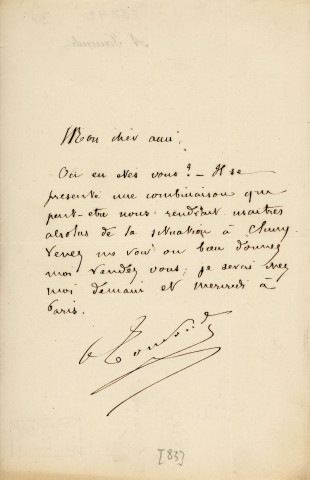 Mon cher ami,
Où en êtes vous? – Il se
presente une combinaison qui
peut-etre nous rendrait maitres
absolus de la situation à Cluny.
Venez me voir ou bien donnez
moi rendez vous; je serai chez
moi demain et mercredi à
Paris.
[83]